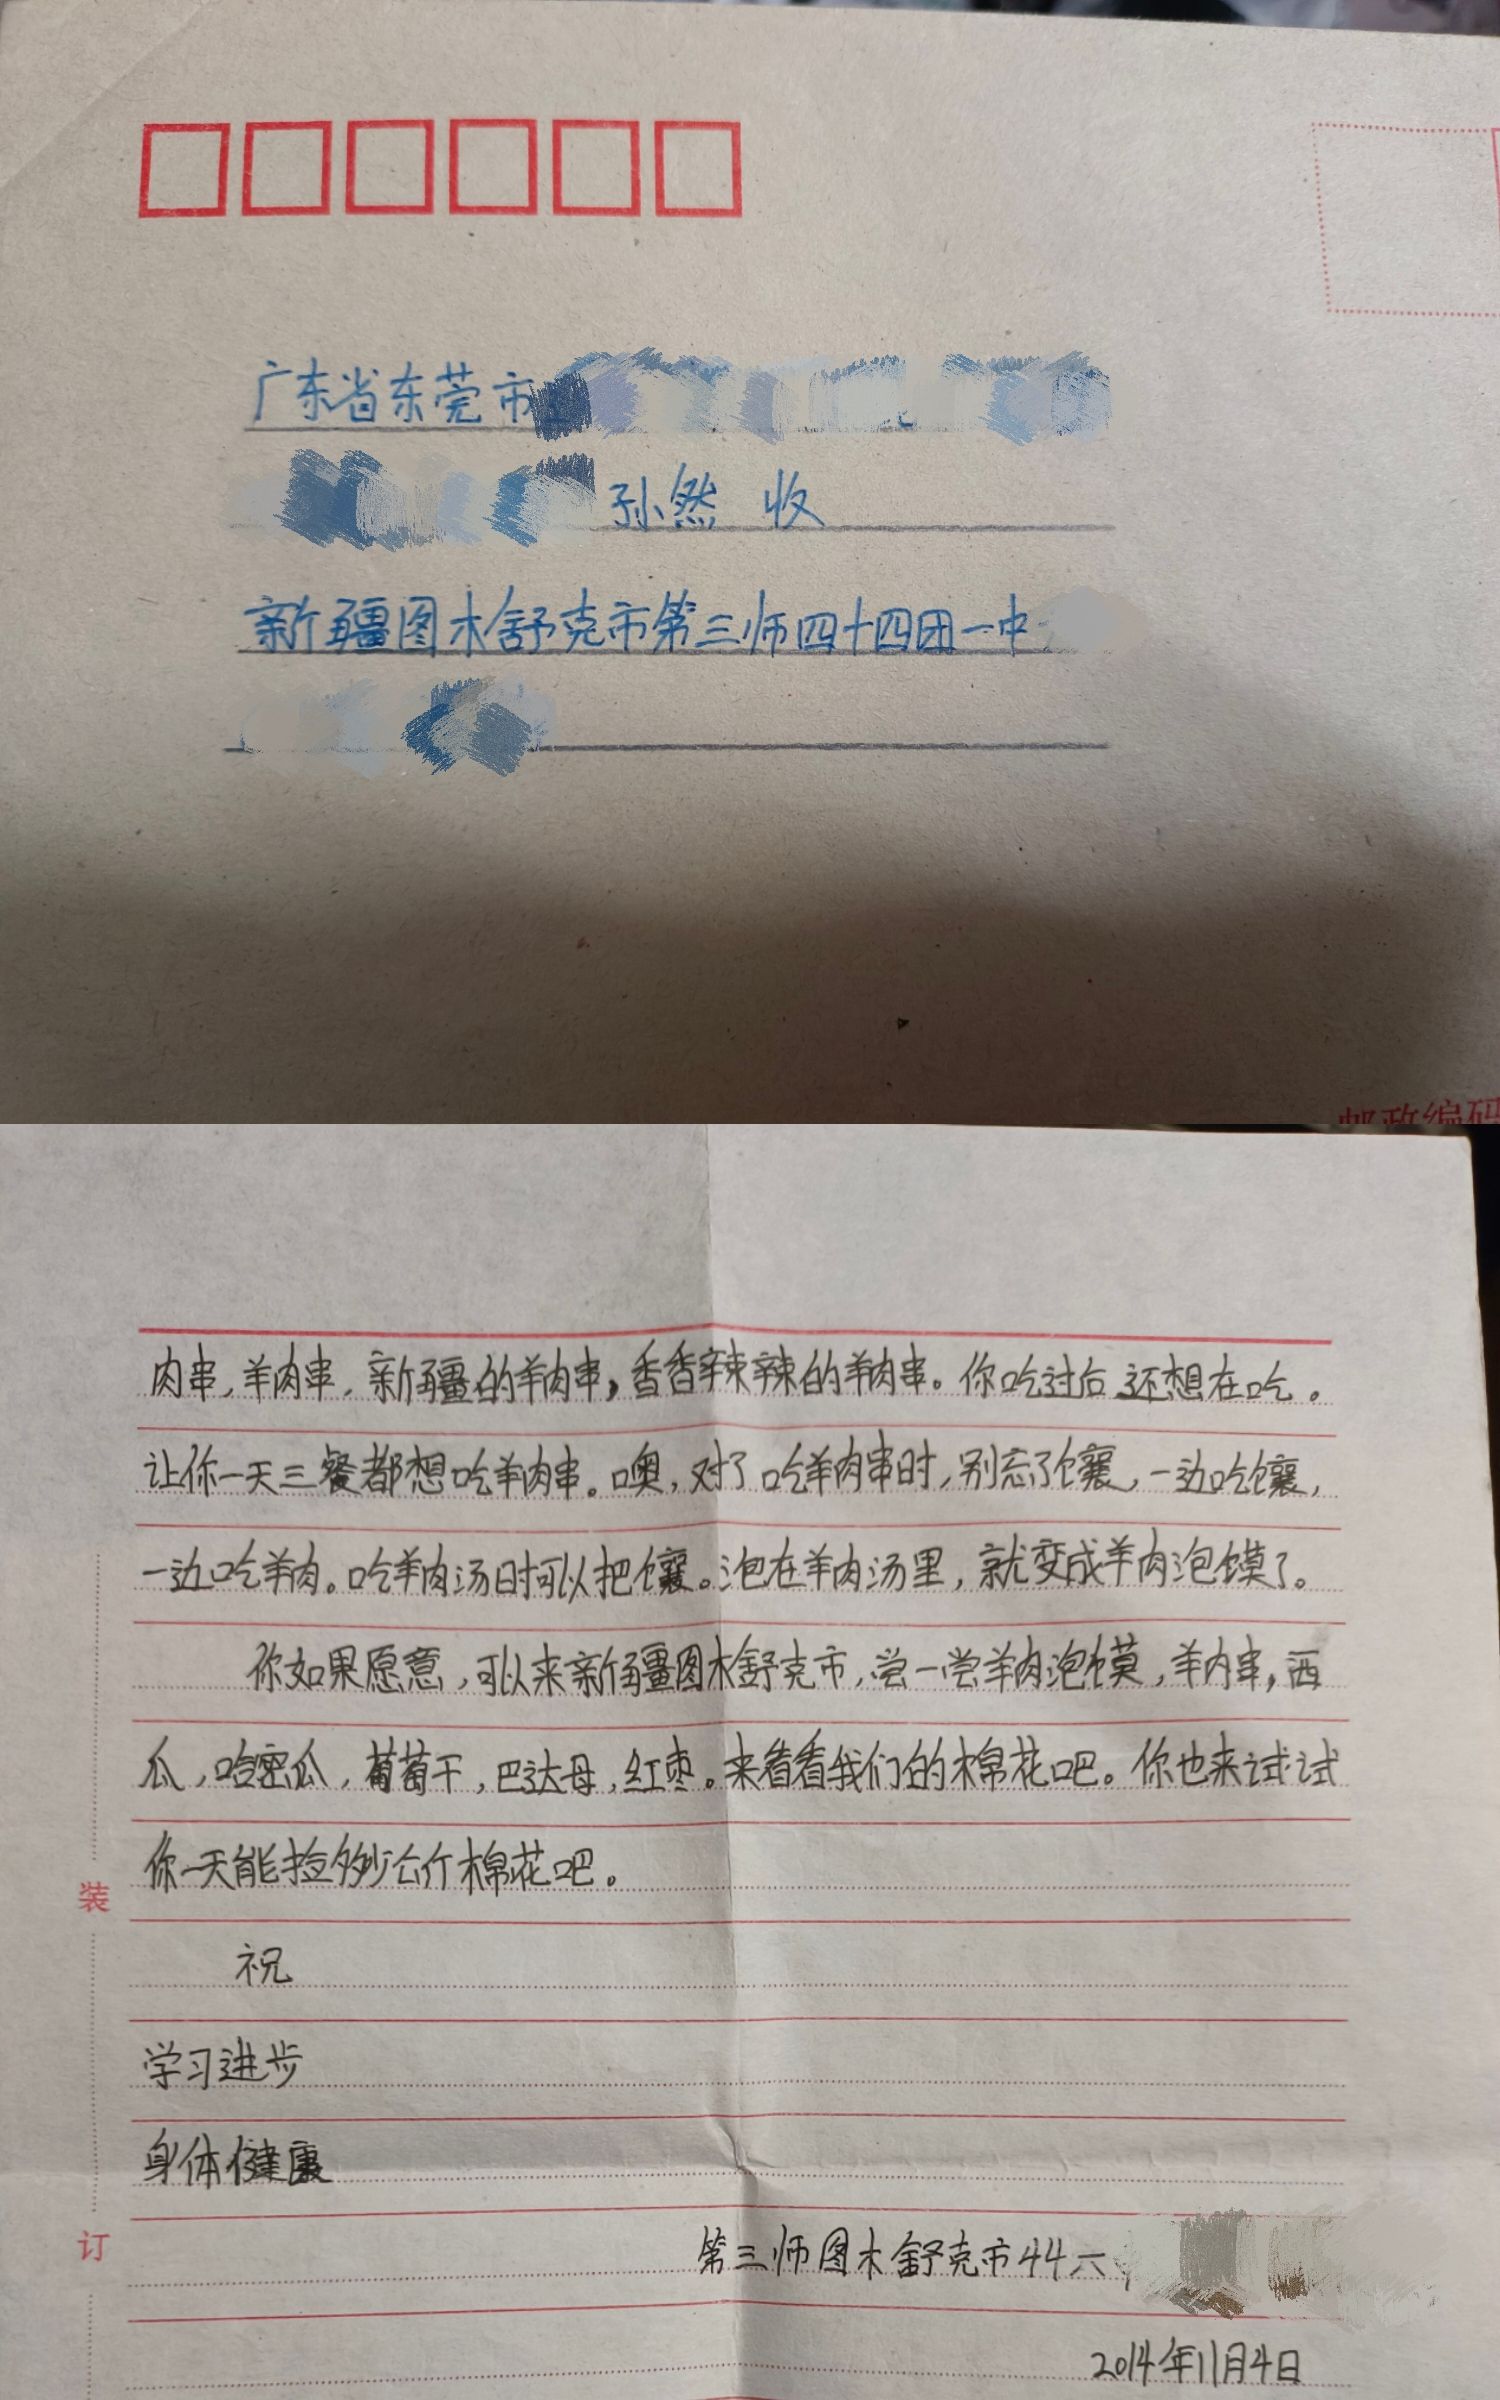 广东省东莞市
孙然 收
新疆图木舒克市第三师四十四团一中
邮政编码
肉串,羊肉串,新疆的羊肉串,香香辣辣的羊肉串。你吃过后还想在吃。
让你一天三餐都想吃羊肉串。噢,对了吃羊肉串时,别忘了饢,一边吃饢,
一边吃羊肉。吃羊肉汤时可以把饢。泡在羊肉汤里,就变成羊肉泡馍了。
你如果愿意,可以来新疆图木舒克市,尝一尝羊肉泡馍,羊内串,西
瓜,哈密瓜,葡萄干,巴达母,红枣。来看看我们的棉花吧。你也来试试
你一天能捡多少公斤棉花吧。
装
祝
学习进步
身体健康
订
第三师图木舒克市44六
2014年11月4日